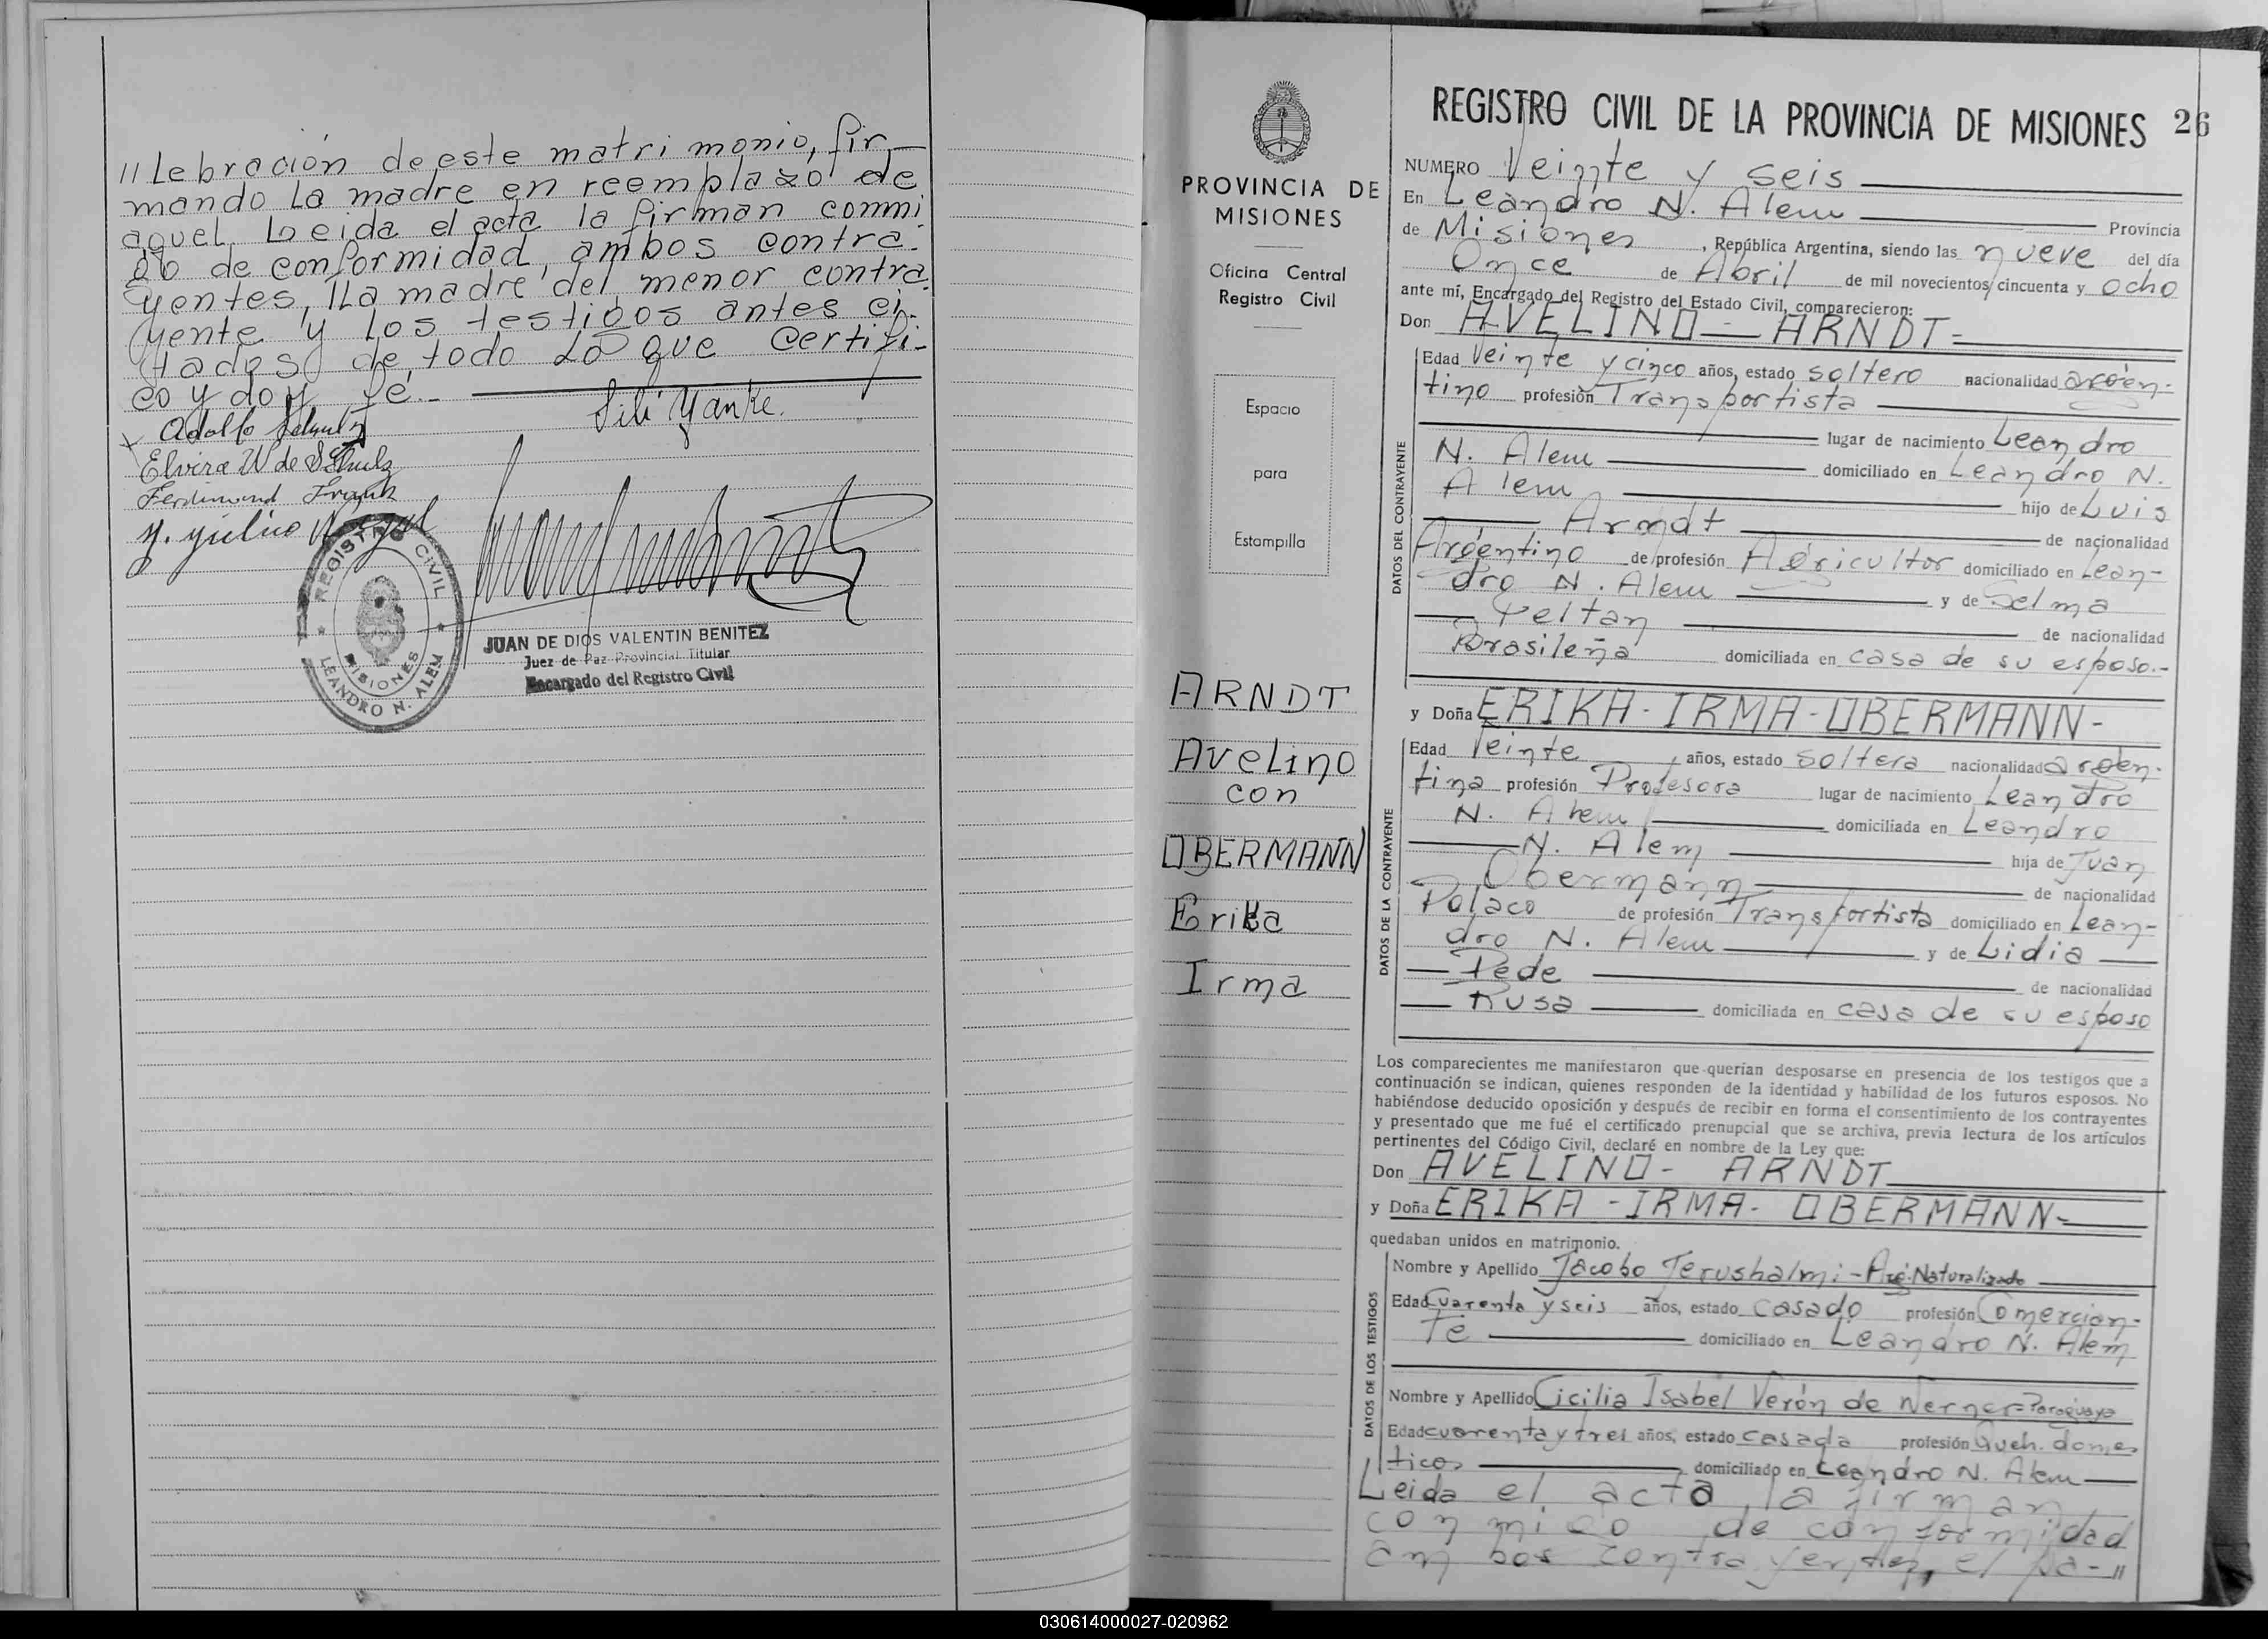 //lebración de este matrimonio, fir-
mando la madre en reemplazo de
aquel. Leida el acta la firman conmi
go de conformidad, ambos contra-
yentes, lla madre del menor contra-
yente y los testigos antes ci-
tados de todo lo que certifi-
co y doy fé.-
Lili Yanke.
Adolfo Schulz
Elvira W de Schulz
Ferdinand Frank
REGISTRO CIVIL
MISIONES
LEANDRO N. ALEM
JUAN DE DIOS VALENTIN BENITEZ
Juez de Paz Provincial Titular
Encargado del Registro Civil
PROVINCIA DE
MISIONES
Oficina Central
Registro Civil
Espacio
para
Estampilla
ARNDT
Avelino
con
OBERMANN
Erika
Irma
REGISTRO CIVIL DE LA PROVINCIA DE MISIONES 26
NUMERO Veinte y seis
En Leandro N. Alem Provincia
de Misiones, República Argentina, siendo las nueve del día
Once de Abril de mil novecientos cincuenta y ocho
ante mí, Encargado del Registro del Estado Civil, comparecieron:
Don AVELINO - ARNDT-
DATOS DEL CONTRAYENTE
Edad Veinte y cinco años, estado soltero nacionalidad argen-
tino profesión Transportista
lugar de nacimiento Leandro
N. Alem domiciliado en Leandro N.
Alem hijo de Luis
Arndt de nacionalidad
Argentino de profesión Agricultor domiciliado en Lean-
dro N. Alem y de Selma
Peltan de nacionalidad
Brasileña domiciliada en casa de su esposo.-
y Doña ERIKA - IRMA - OBERMANN-
DATOS DE LA CONTRAYENTE
Edad Veinte, años, estado soltera nacionalidad argen-
tina profesión Profesora lugar de nacimiento Leandro
N. Alem domiciliada en Leandro
N. Alem hija de Juan
Obermann de nacionalidad
Polaco de profesión Transportista domiciliado en Lean-
dro N. Alem y de Lidia
Pede de nacionalidad
Rusa domiciliada en casa de su esposo
Los comparecientes me manifestaron que querían desposarse en presencia de los testigos que a
continuación se indican, quienes responden de la identidad y habilidad de los futuros esposos. No
habiéndose deducido oposición y después de recibir en forma el consentimiento de los contrayentes
y presentado que me fué el certificado prenupcial que se archiva, previa lectura de los artículos
pertinentes del Código Civil, declaré en nombre de la Ley que:
Don AVELINO - ARNDT
y Doña ERIKA - IRMA - OBERMANN-
quedaban unidos en matrimonio.
DATOS DE LOS TESTIGOS
Nombre y Apellido Jacobo Jerushalmi - Arg. Naturalizado
Edad Cuarenta y seis años, estado casado profesión Comercian-
te domiciliado en Leandro N. Alem
Nombre y Apellido Cicilia Isabel Verón de Nerner-Paraguaya
Edad cuarenta y tres años, estado casada profesión Queh. domes
ticos domiciliado en Leandro N. Alem
Leida el acta, la firman
conmigo de conformidad
ambos contrayentes, el pa-//
030614000027-020962